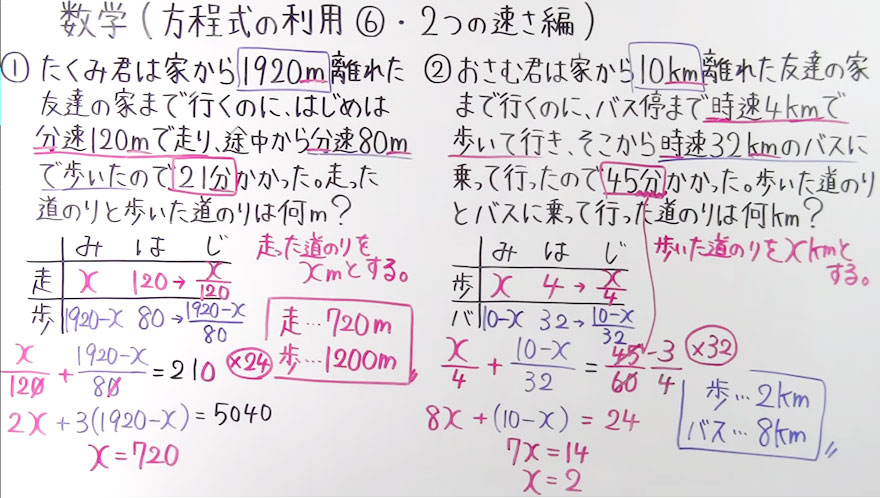 数学(方程式の利用⑥・2つの速さ編)
① たくみ君は家から1920m離れた
友達の家まで行くのに、はじめは
分速120mで走り、途中から分速80m
で歩いたので21分かかった。走った
道のりと歩いた道のりは何m?
み は じ
走 x 120→x/120
歩 1920-x 80→1920-x/80
走った道のりを
xmとする。
x/120 + 1920-x/80 = 210 ×24
2x+3(1920-x)=5040
x=720
走…720m
歩…1200m
② おさむ君は家から10km離れた友達の家
まで行くのに、バス停まで時速4kmで
歩いて行き、そこから時速32kmのバスに
乗って行ったので45分かかった。歩いた道のり
とバスに乗って行った道のりは何km?
み は じ
歩 x 4→x/4
バ 10-x 32→10-x/32
歩いた道のりをxkmと
する。
x/4 + 10-x/32 = 45/60 -3/4 ×32
8x+(10-x)=24
7x=14
x=2
歩…2km
バス…8km